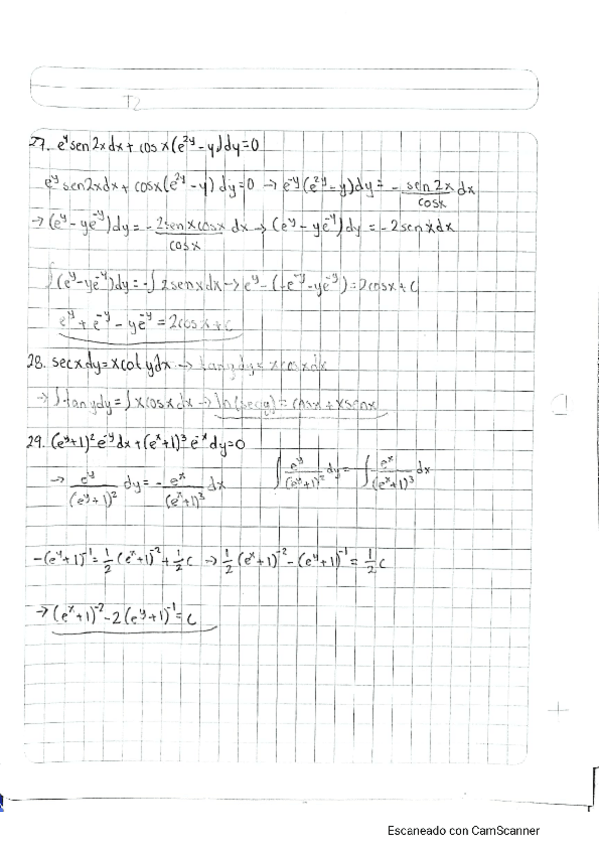 T2
27. e^y sen 2x dx + cos x (e^2y - y) dy = 0
e^y sen 2x dx + cos x (e^2y - y) dy = 0 → e^-y (e^2y - y) dy = - sen 2x / cos x dx
→ (e^y - ye^-y) dy = - 2 sen x cos x / cos x dx → (e^y - ye^-y) dy = - 2 sen x dx
∫(e^y - ye^-y) dy = -∫ 2 sen x dx → e^y - (-e^-y - ye^-y) = 2 cos x + C
e^y + e^-y - ye^-y = 2 cos x + C
28. sec x dy = x cot y dx → tan y dy = x cos x dx
→ ∫ tan y dy = ∫ x cos x dx → ln(sec y) = cos x + x sen x
29. (e^y+1)^2 e^-y dx + (e^x+1)^3 e^-x dy = 0
→ e^y / (e^y+1)^2 dy = - e^x / (e^x+1)^3 dx ∫ e^y / (e^y+1)^2 dy = -∫ e^x / (e^x+1)^3 dx
-(e^y+1)^-1 = 1/2 (e^x+1)^-2 + 1/2 C → 1/2 (e^x+1)^-2 - (e^y+1)^-1 = 1/2 C
→ (e^x+1)^-2 - 2(e^y+1)^-1 = C
Escaneado con CamScanner